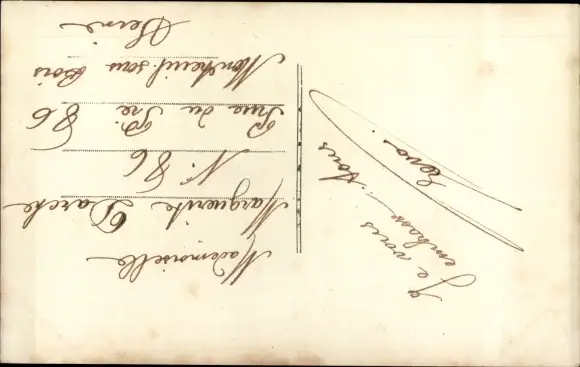 Je vous
embrasse tous
Mademoiselle
Marguerite Darche
N. 86
Rue du Pré 86
Montreuil sous Bois
Seine